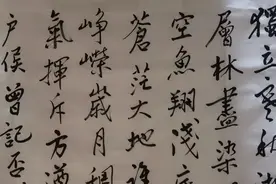 獨立寒秋
層林盡染
空魚翔淺底
蒼茫大地誰
崢嶸歲月稠
氣揮斥方遒
户侯曾記否